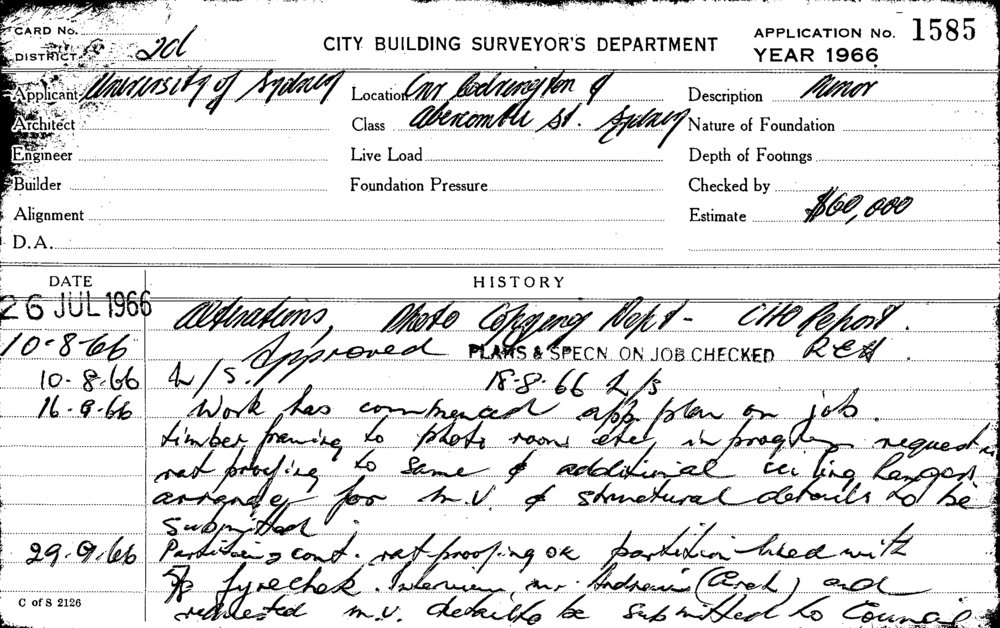 CARD No.
DISTRICT 2d
CITY BUILDING SURVEYOR'S DEPARTMENT
APPLICATION No. 1585
YEAR 1966
Applicant University of Sydney
Location Cnr Codrington &
Description Minor
Architect
Class Abercombie St. Sydney
Nature of Foundation
Engineer
Live Load
Depth of Footings
Builder
Foundation Pressure
Checked by
Alignment
Estimate $60,000
D.A.
DATE
HISTORY
26 JUL 1966 Alterations, Photo Copying Dept - CHO Report.
10-8-66 Approved PLANS & SPECN. ON JOB CHECKED
10-8-66 L/S. 18-8-66 L/S
16-9-66 Work has commenced app. plan on job.
timber framing to photo room etc, in progress requested
rat proofing to same & additional ceiling hangers
arrange for m.v. & structural details to be
submitted.
29-9-66 Partitioning cont. rat-proofing ok partition lined with
fyrechek. Interview mr. Andrews (Arch) and
requested m.v. details to be submitted to Council
C of S 2126